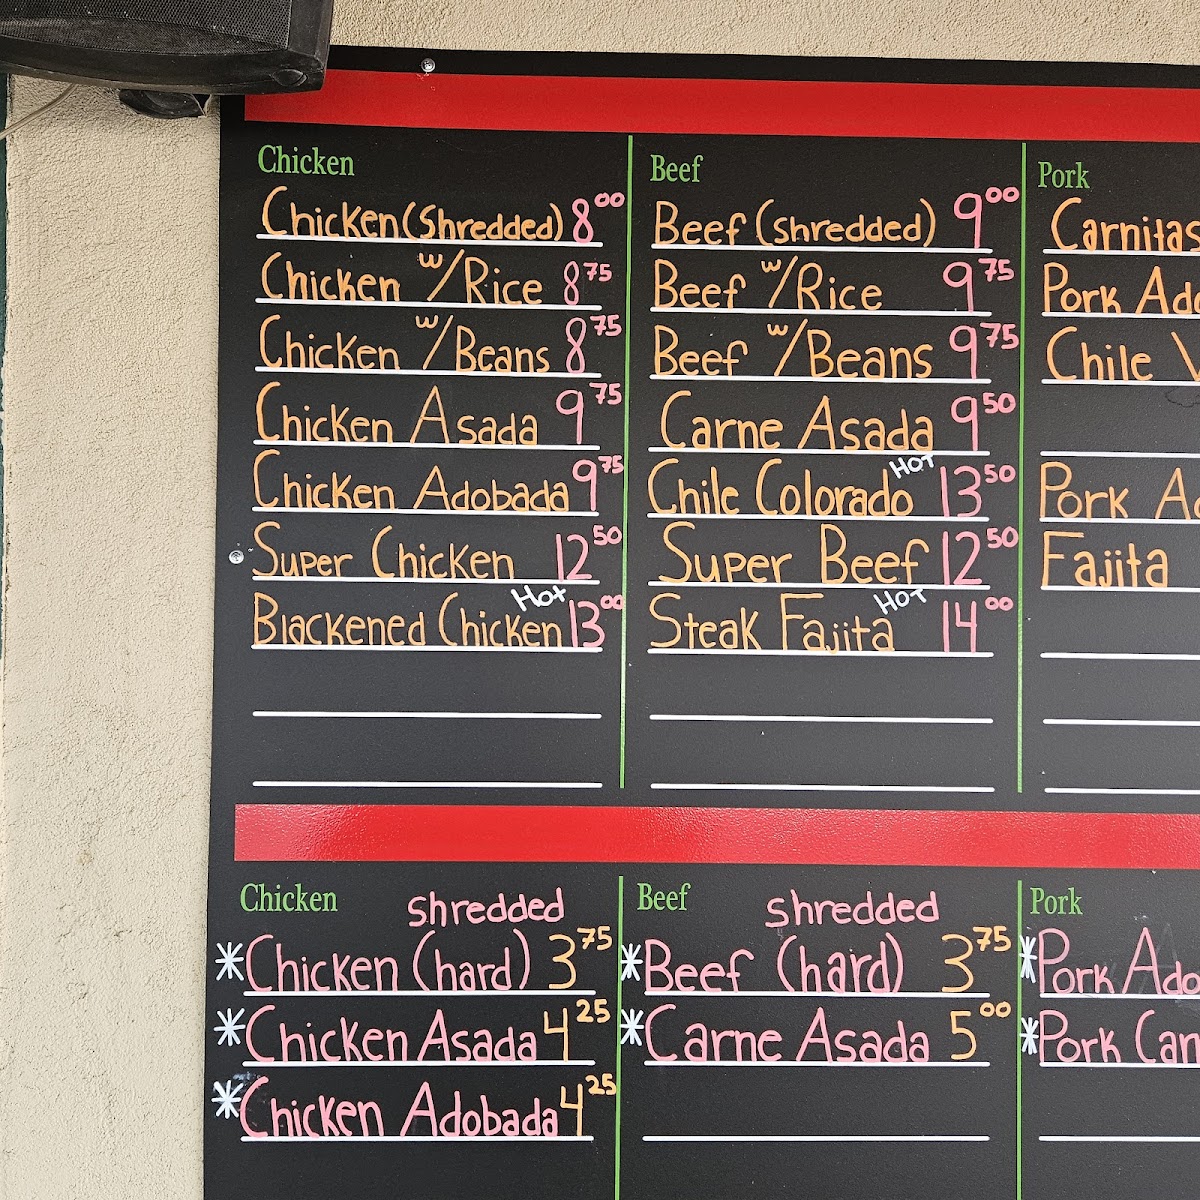 Chicken
Chicken (Shredded) 8.00
Chicken w/Rice 8.75
Chicken w/Beans 8.75
Chicken Asada 9.75
Chicken Adobada 9.75
Super Chicken 12.50
Blackened Chicken Hot 13.00
Beef
Beef (shredded) 9.00
Beef w/Rice 9.75
Beef w/Beans 9.75
Carne Asada 9.50
Chile Colorado Hot 13.50
Super Beef 12.50
Steak Fajita Hot 14.00
Pork
Carnitas
Pork
Chile
Pork
Fajita
Chicken
shredded
*Chicken (hard) 3.75
*Chicken Asada 4.25
*Chicken Adobada 4.25
Beef
shredded
*Beef (hard) 3.75
*Carne Asada 5.00
Pork
*Pork
*Pork